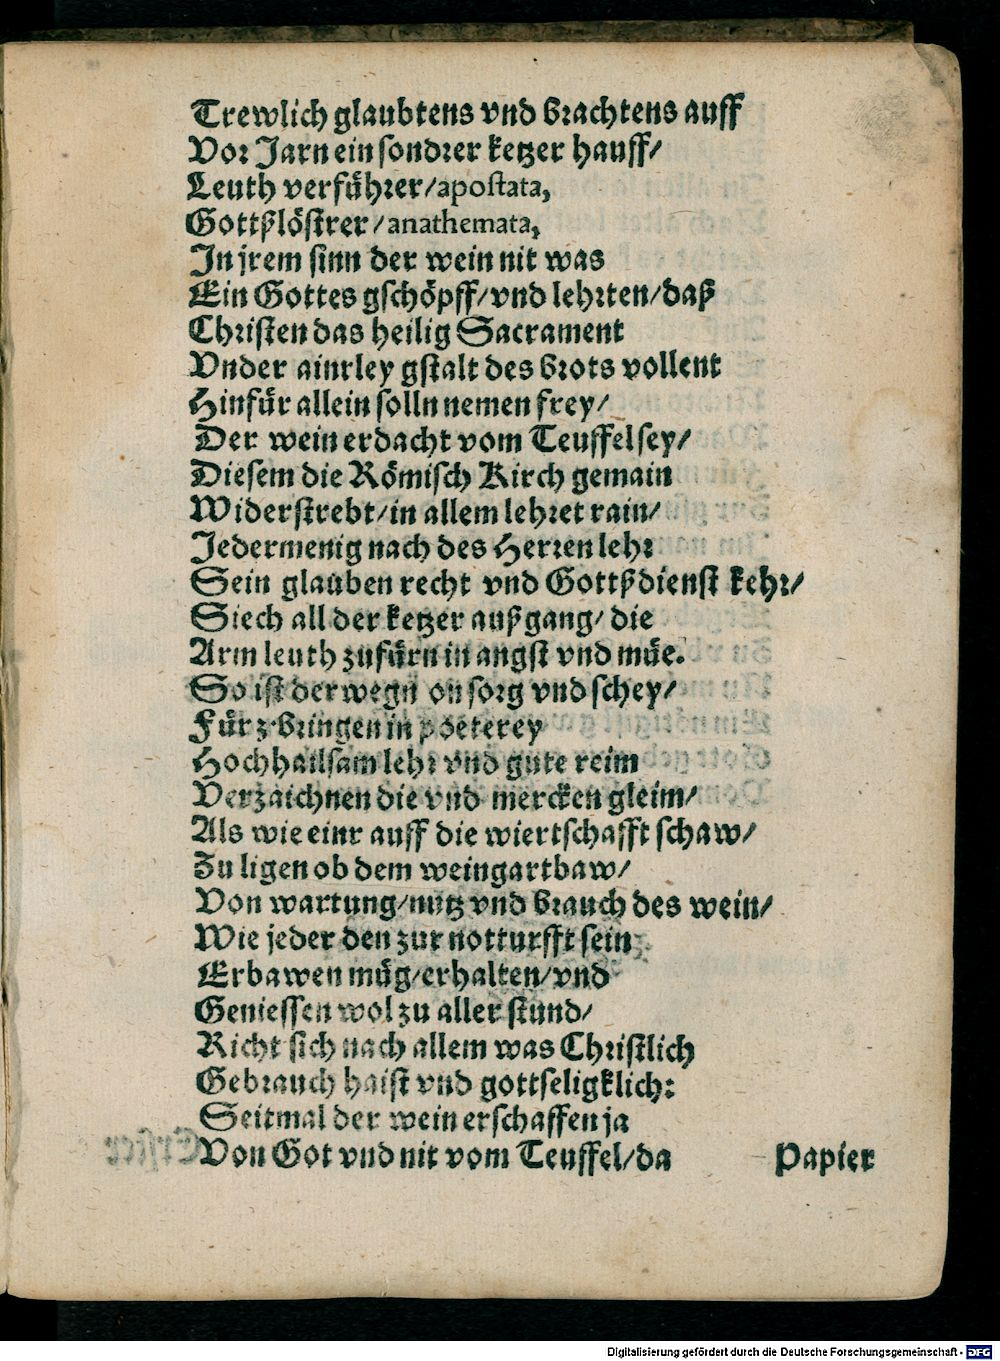 Trewlich glaubtens vnd brachtens auff
Vor Jarn ein sondrer ketzer hauff/
Leuth verführer/apostata,
Gottßlöstrer/anathemata,
In jrem sinn der wein nit was
Ein Gottes gschöpff/vnd lehrten/daß
Christen das heilig Sacrament
Vnder ainrley gstalt des brots vollent
Hinfür allein solln nemen frey/
Der wein erdacht vom Teuffel sey/
Diesem die Römisch Kirch gemain
Widerstrebt/in allem lehret rain/
Jedermenig nach des Herren lehr
Sein glauben recht vnd Gottßdienst kehr/
Siech all der ketzer außgang/die
Arm leuth zufürn in angst vnd müe.
So ist der wegn on sorg vnd schey/
Für z'bringen in poeterey
Hochhailsam lehr vnd gute reim
Verzaichnen die vnd mercken gleim/
Als wie einr auff die wiertschafft schaw/
Zu ligen ob dem weingartbaw/
Von wartung/nutz vnd brauch des wein/
Wie jeder den zur notturfft sein
Erbawen müg/erhalten/vnd
Geniessen wol zu aller stund/
Richt sich nach allem was Christlich
Gebrauch haist vnd gottseligklich:
Seitmal der wein erschaffen ja
Von Got vnd nit vom Teuffel/da
Papier
Digitalisierung gefördert durch die Deutsche Forschungsgemeinschaft - DFG